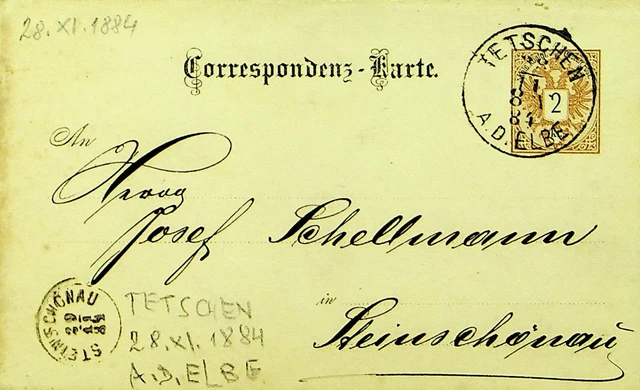 28. XI. 1884
Correspondenz-Karte.
TETSCHEN
28
11
84
A.D. ELBE
2
An
Herrn
Josef Schellmann
in
Steinschönau
STEINSCHÖNAU
29
11
84
TETSCHEN
28. XI. 1884
A.D. ELBE